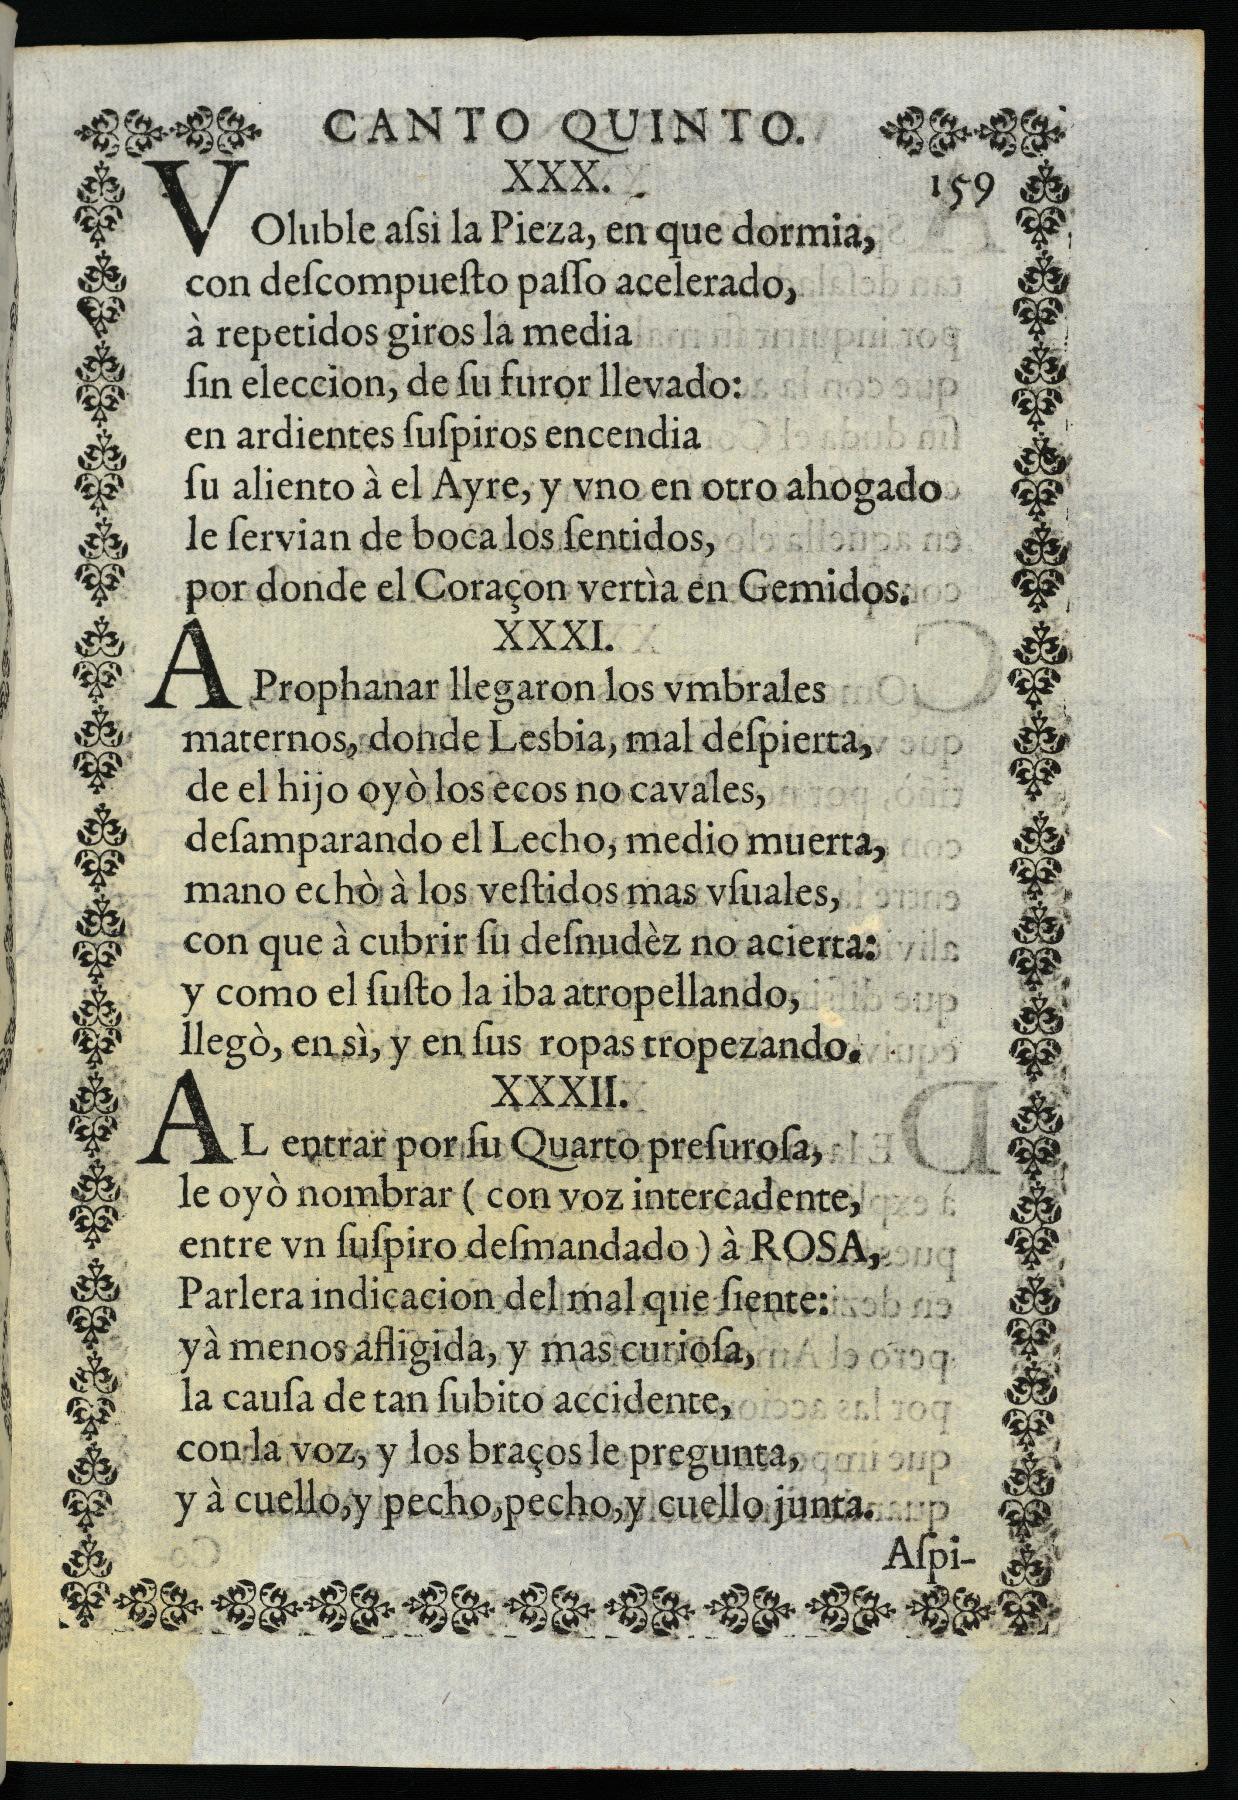 CANTO QUINTO.
XXX.
159
VOluble aſsi la Pieza, en que dormia,
con deſcompueſto paſſo acelerado,
à repetidos giros la media
ſin eleccion, de ſu furor llevado:
en ardientes ſuſpiros encendia
ſu aliento à el Ayre, y vno en otro ahogado
le ſervian de boca los ſentidos,
por donde el Coraçon vertìa en Gemidos.
XXXI.
A Prophanar llegaron los vmbrales
maternos, donde Lesbia, mal deſpierta,
de el hijo oyò los ecos no cavales,
deſamparando el Lecho, medio muerta,
mano echò à los veſtidos mas vſuales,
con que à cubrir ſu deſnudèz no acierta:
y como el ſuſto la iba atropellando,
llegò, en sì, y en ſus ropas tropezando.
XXXII.
AL entrar por ſu Quarto preſuroſa,
le oyò nombrar ( con voz intercadente,
entre vn ſuſpiro deſmandado ) à ROSA,
Parlera indicacion del mal que ſiente:
yà menos afligida, y mas curioſa,
la cauſa de tan ſubito accidente,
con la voz, y los braços le pregunta,
y à cuello, y pecho, pecho, y cuello junta.
Aſpi-